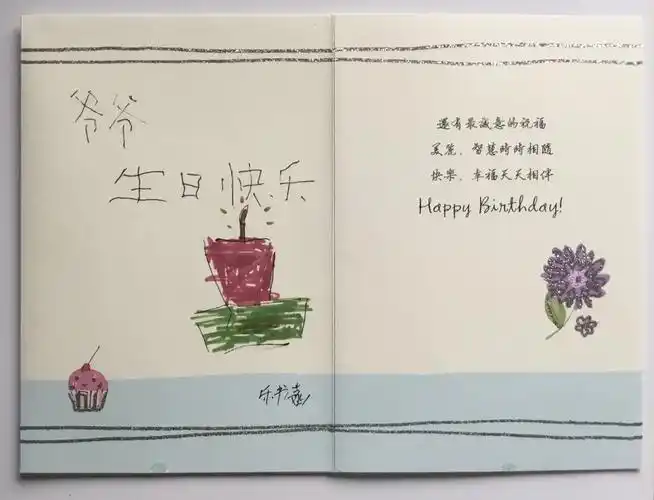 爷爷
生日快乐
還有最誠意的祝福
美麗、智慧時時相隨
快樂、幸福天天相伴
Happy Birthday!